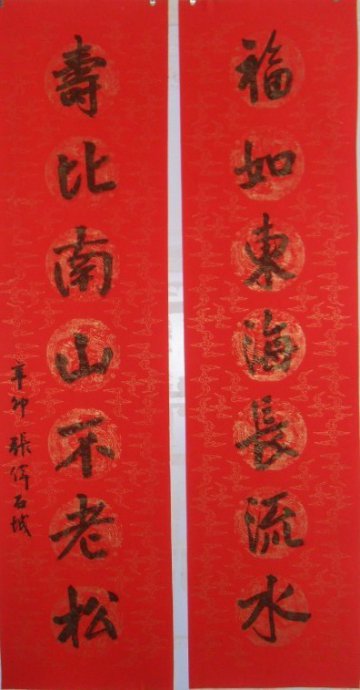 福如東海長流水
壽比南山不老松
辛卯 張偉石城